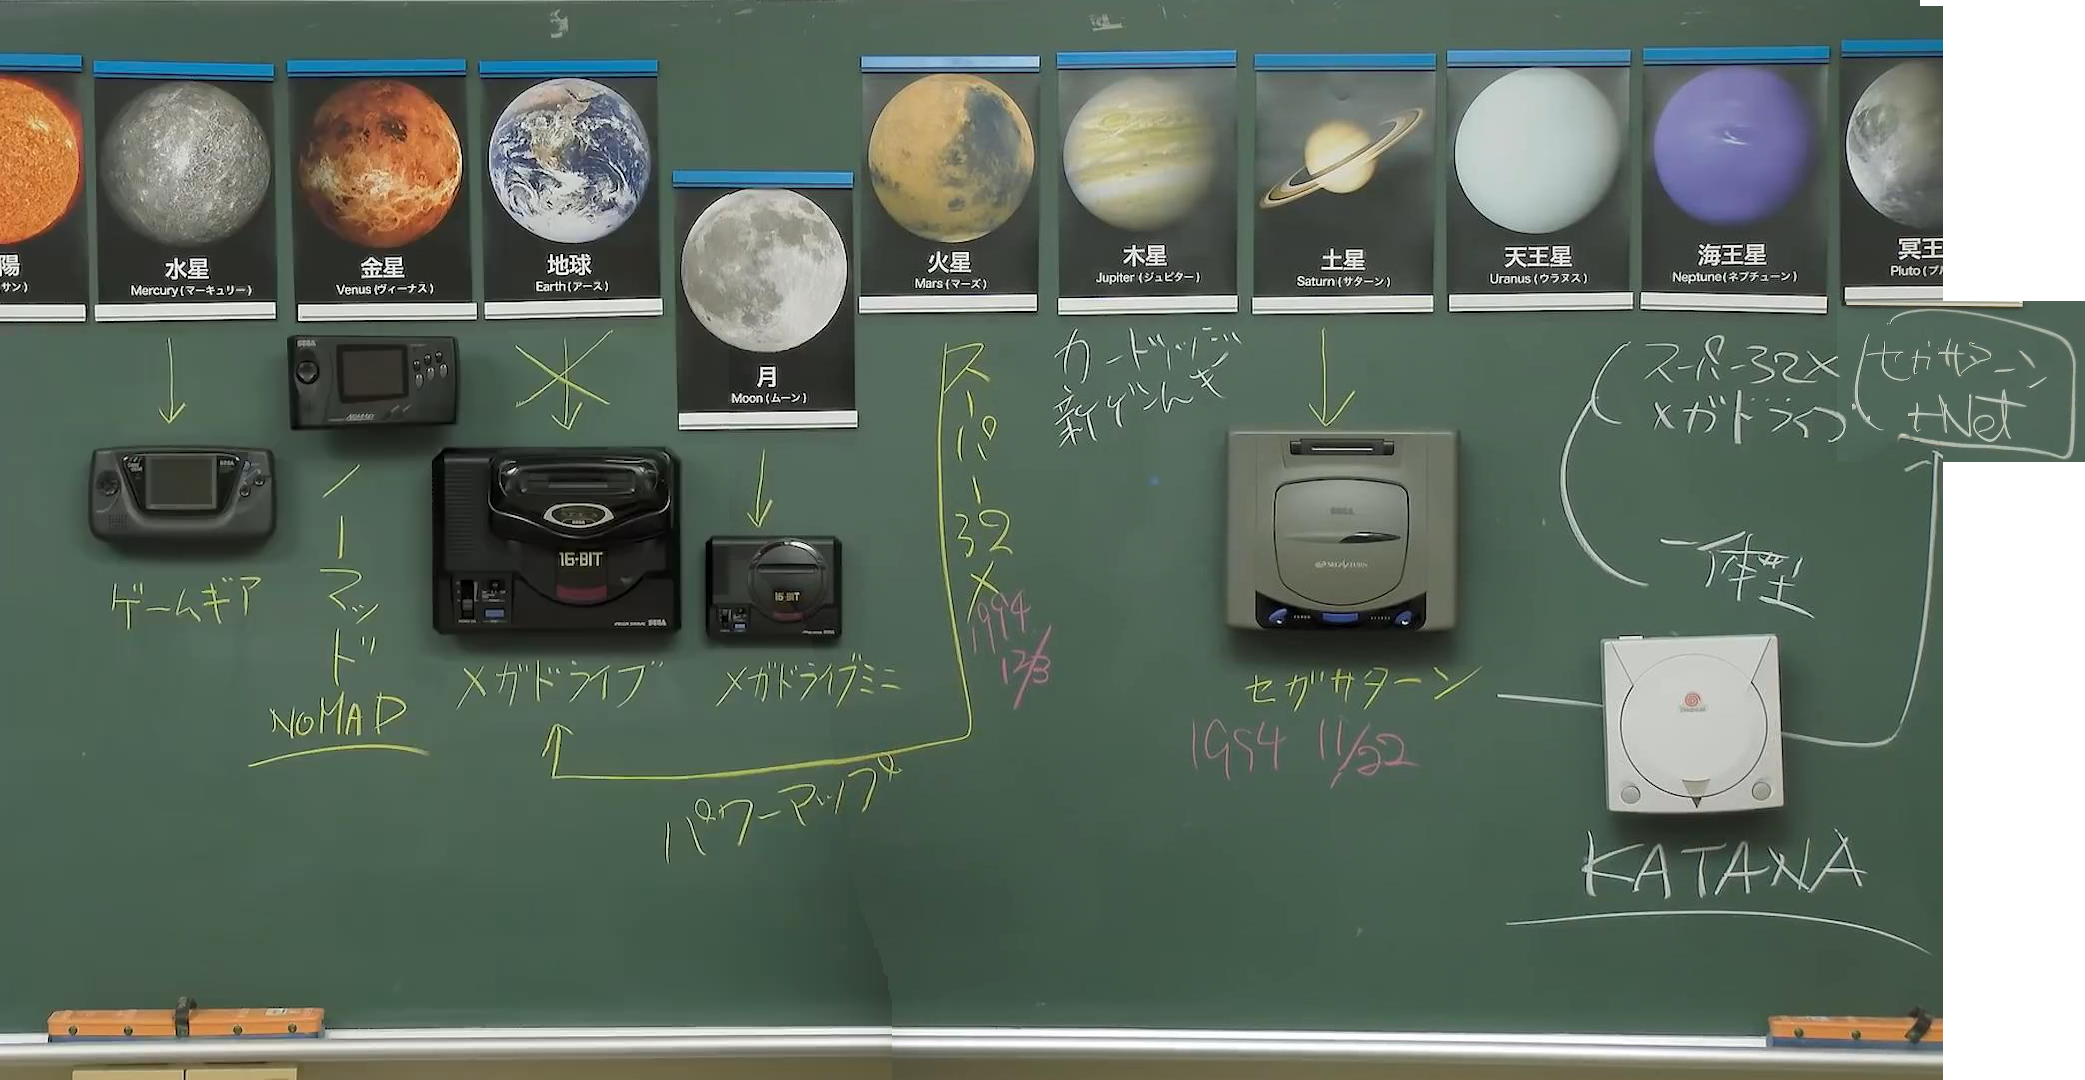 陽
サン)
水星
Mercury (マーキュリー)
金星
Venus (ヴィーナス)
地球
Earth (アース)
月
Moon (ムーン)
火星
Mars (マーズ)
木星
Jupiter (ジュピター)
土星
Saturn (サターン)
天王星
Uranus (ウラヌス)
海王星
Neptune (ネプチューン)
冥王
Pluto (プル
SEGA
NOMAD
SEGA
ゲームギア
ノーマッド
NOMAD
16-BIT
SEGA
メガドライブ
16-BIT
メガドライブミニ
スーパー32X
1994
12/3
パワーアップ
カードリッジ
新げんき
SEGA
SEGA SATURN
セガサターン
1994 11/22
スーパー32X
メガドライブ
セガサターン
+Net
一体型
Dreamcast
KATANA